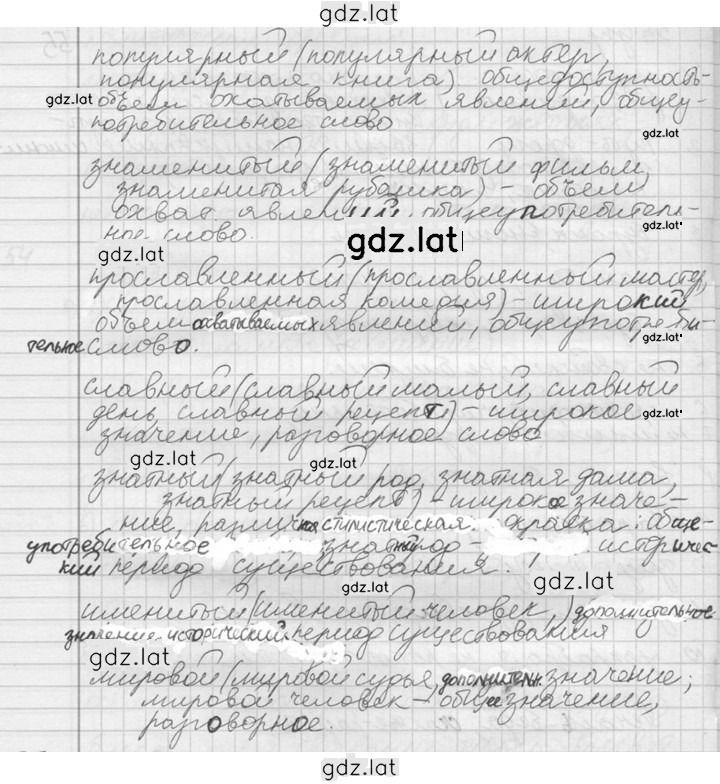 gdz.lat
популярный (популярный актер,
популярная книга) общедоступность-
gdz.lat объем охатываемых явлений, общеу-
потребительное слово
gdz.lat
знаменитый (знаменитый фильм,
знаменитая рубашка) - объем
охват явлений, общеупотребитель-
ное слово. gdz.lat gdz.lat
gdz.lat
прославленный (прославленный мастер,
прославленная комедия) - широкий
объем охватываемых явлений, общеупотреби-
тельное слово. gdz.lat
славный (славный малый, славный
день, славный рецепт) - широкое gdz.lat
значение, разговорное слово
gdz.lat gdz.lat
знатный (знатный род, знатная дама,
знатный рецепт) - широкое значе-
ние, различная стилистическая окраска: обще-
употребительное знатный род - историчес-
кий период существования.
gdz.lat gdz.lat
именитый (именитый человек,) дополнительное
значение-исторический период существования
gdz.lat
мировой (мировой судья, дополнителн. значение;
мировой человек - общее значение,
разговорное.
gdz.lat